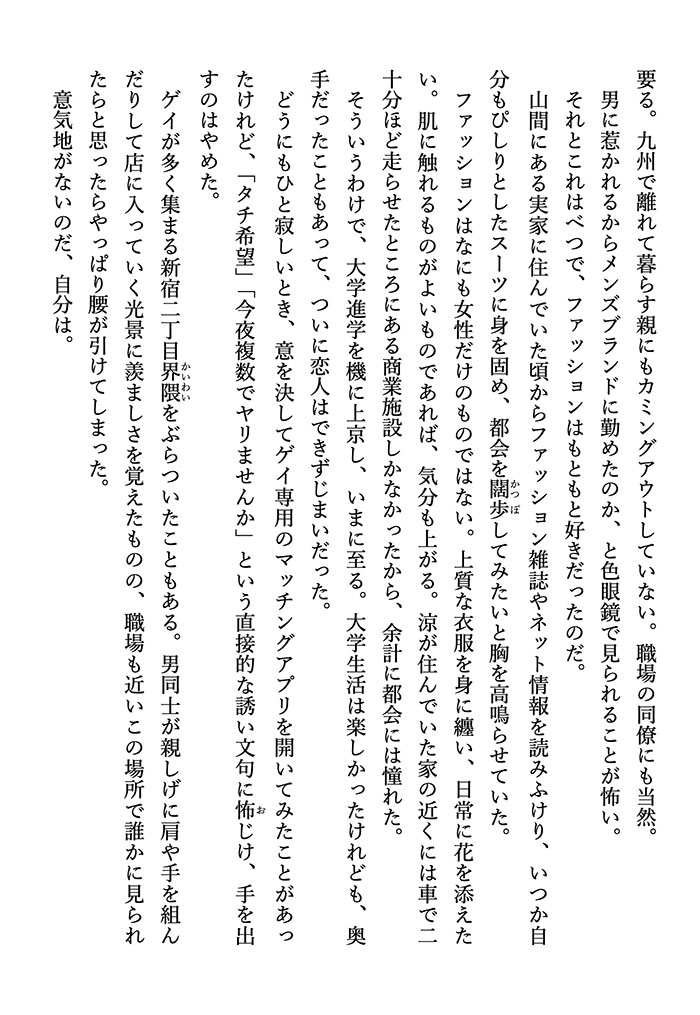 要る。九州で離れて暮らす親にもカミングアウトしていない。職場の同僚にも当然。
男に惹かれるからメンズブランドに勤めたのか、と色眼鏡で見られることが怖い。
それとこれはべつで、ファッションはもともと好きだったのだ。
山間にある実家に住んでいた頃からファッション雑誌やネット情報を読みふけり、いつか自
分もぴしりとしたスーツに身を固め、都会を闊歩かつぽしてみたいと胸を高鳴らせていた。
ファッションはなにも女性だけのものではない。上質な衣服を身に纏い、日常に花を添えた
い。肌に触れるものがよいものであれば、気分も上がる。涼が住んでいた家の近くには車で二
十分ほど走らせたところにある商業施設しかなかったから、余計に都会には憧れた。
そういうわけで、大学進学を機に上京し、いまに至る。大学生活は楽しかったけれども、奥
手だったこともあって、ついに恋人はできずじまいだった。
どうにもひと寂しいとき、意を決してゲイ専用のマッチングアプリを開いてみたことがあっ
たけれど、「タチ希望」「今夜複数でヤリませんか」という直接的な誘い文句に怖おじけ、手を出
すのはやめた。
ゲイが多く集まる新宿二丁目界隈かいわいをぶらついたこともある。男同士が親しげに肩や手を組ん
だりして店に入っていく光景に羨ましさを覚えたものの、職場も近いこの場所で誰かに見られ
たらと思ったらやっぱり腰が引けてしまった。
意気地がないのだ、自分は。